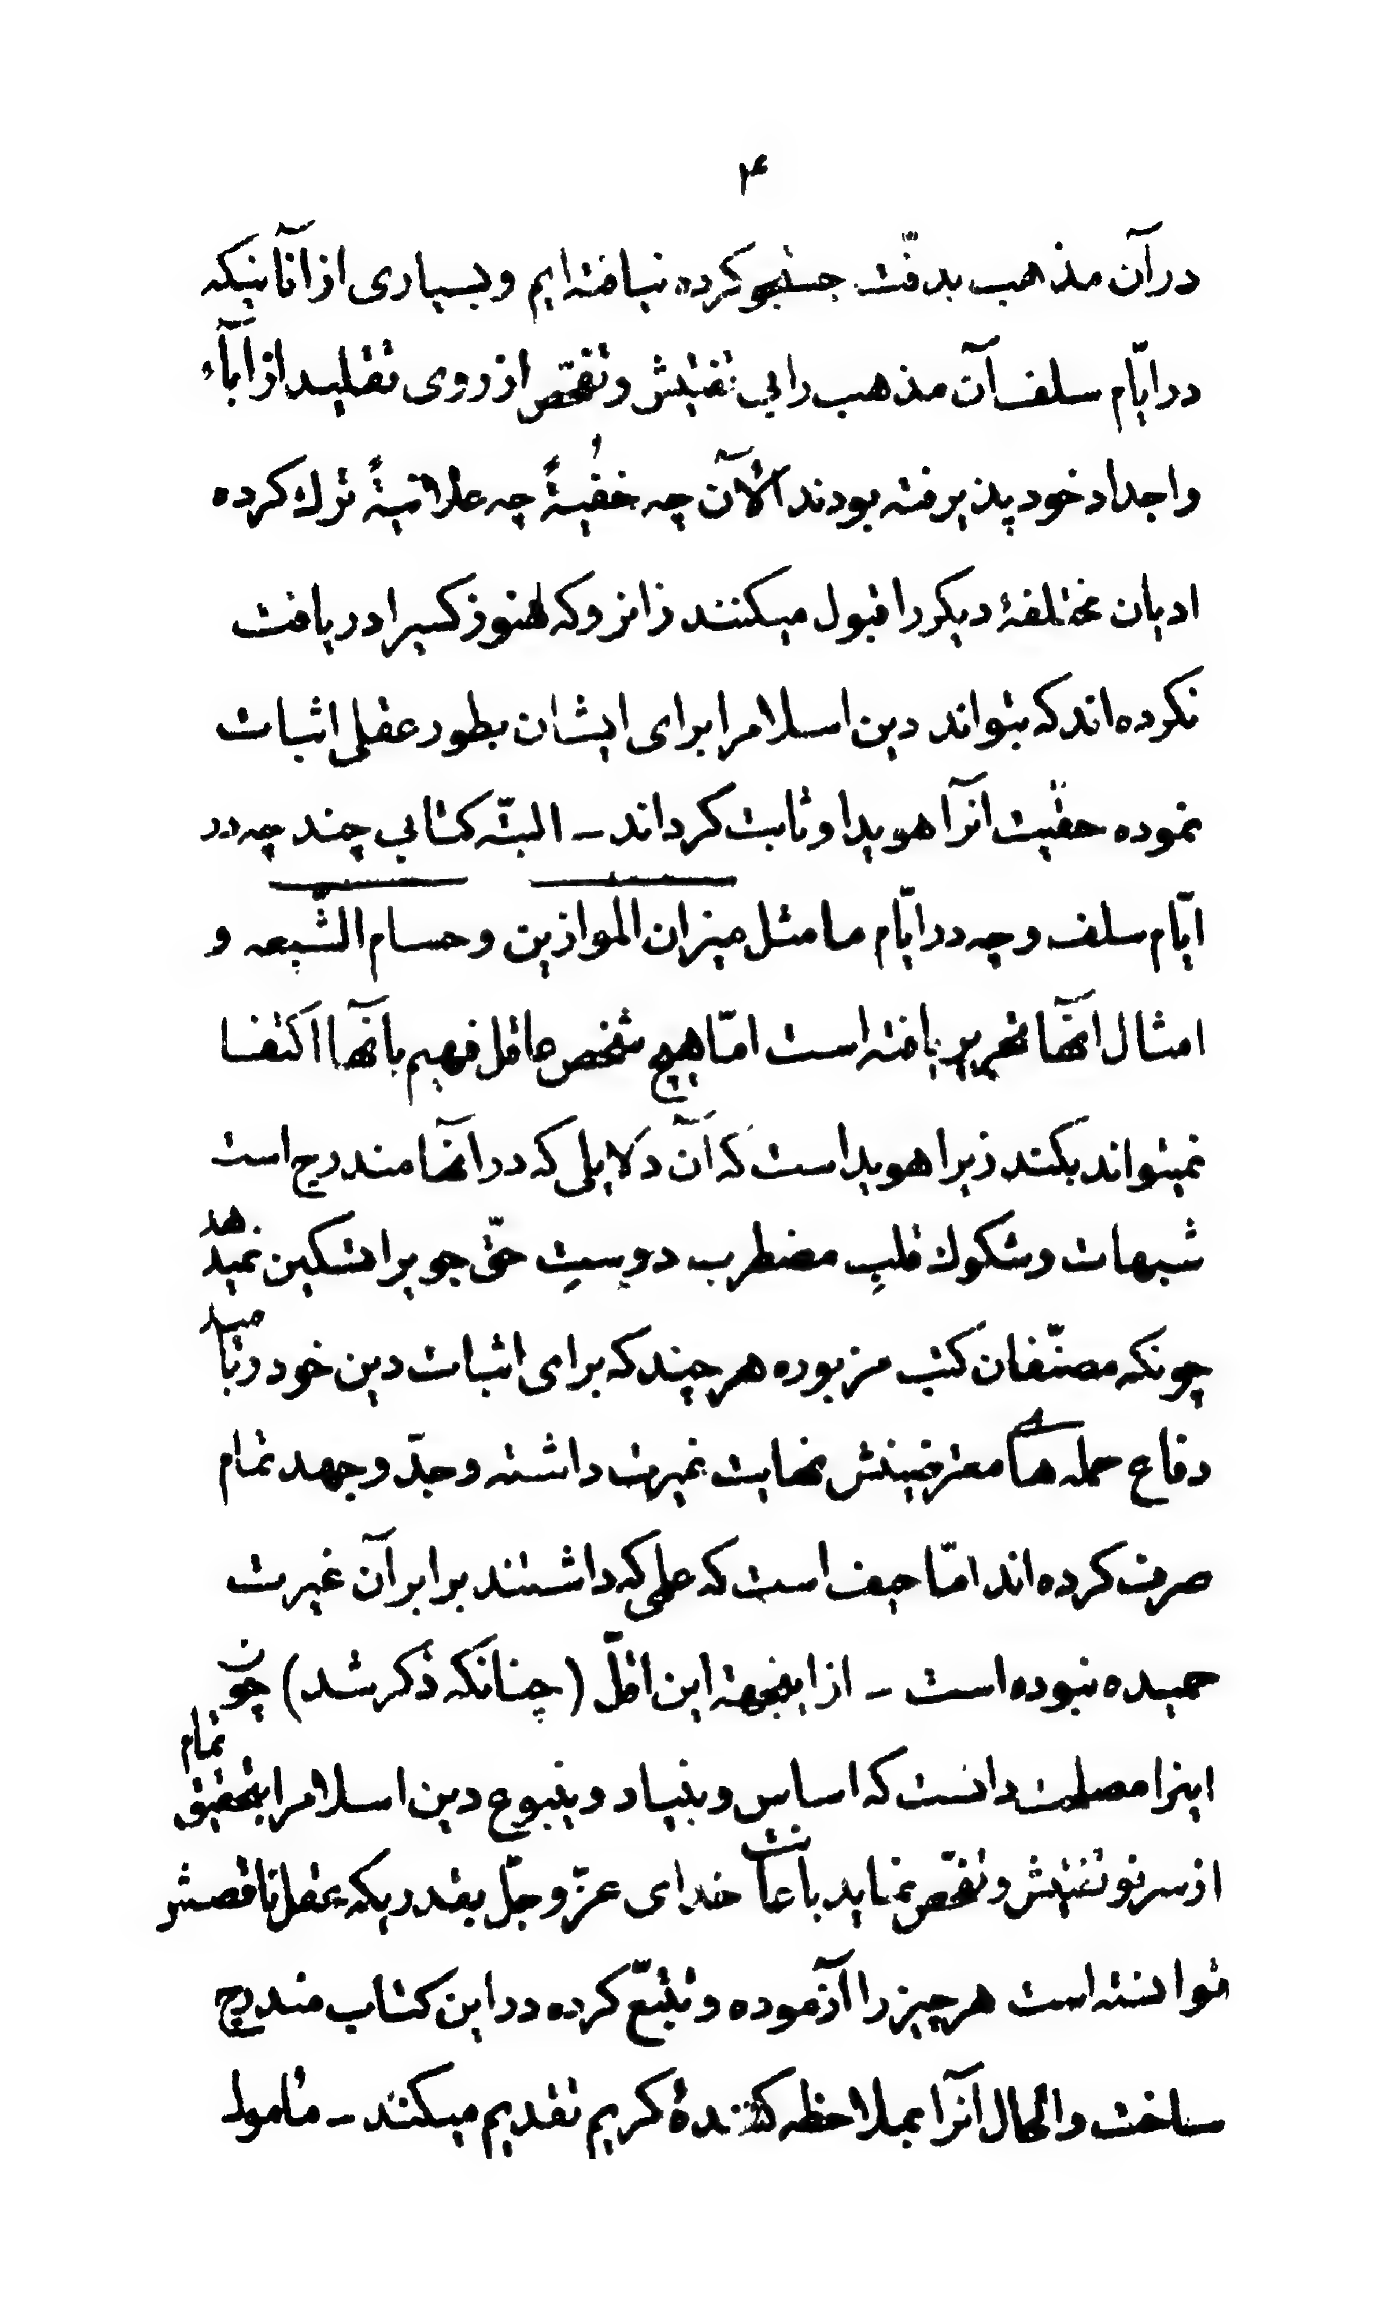 ۴
در آن مذهب بدقّت جستجو کرده نیافته‌ایم و بسیاری از آنانیکه
در ایّام سلف آن مذهب را بی تفتیش و تفحّص از روی تقلید از آبآء
و اجداد خود پذیرفته بودند الآن چه خفیةً چه علانیةً ترك کرده
ادیان مختلفهٔ دیگر را قبول میکنند زانرو که هنوز کسیرا دریافت
نکرده‌اند که بتواند دین اسلامرا برای ایشان بطور عقلی اثبات
نموده حقّیت آنرا هویدا و ثابت گرداند – البتّه کتابی چند چه در
ایّام سلف و چه در ایّام ما مثل میزان الموازین و حسام الشّیعه و
امثال آنها تحریر یافته است امّا هیچ شخص عاقل فهیم بآنها اکتفا
نمیتواند بکند زیرا هویداست که آن دلایلی که در آنها مندرج است
شبهات و شکوك قلبِ مضطرب دوستِ حقّ جویرا تسکین نمیدهد
چونکه مصنّفان کتب مزبوره هر چند که برای اثبات دین خود و بامید
دفاع حمله های معترضینش نهایت غیرت داشته و جدّ و جهد تمام
صرف کرده‌اند امّا حیف است که علمی که داشتند برابر آن غیرت
حمیده نبوده است – از اینجهة این اقلّ (چنانکه ذکر شد) چون
اینرا مصلحت دانست که اساس و بنیاد و ینبوع دین اسلامرا بتحقیق تمام
از سر نو تفتیش و تفحّص نماید باعانت خدای عزّ و جلّ بقدریکه عقل ناقصش
توانسته است هر چیز را آزموده و تتبّع کرده در این کتاب مندرج
ساخت و الحال آنرا بملاحظه کنندهٔ کریم تقدیم میکند – مأمول